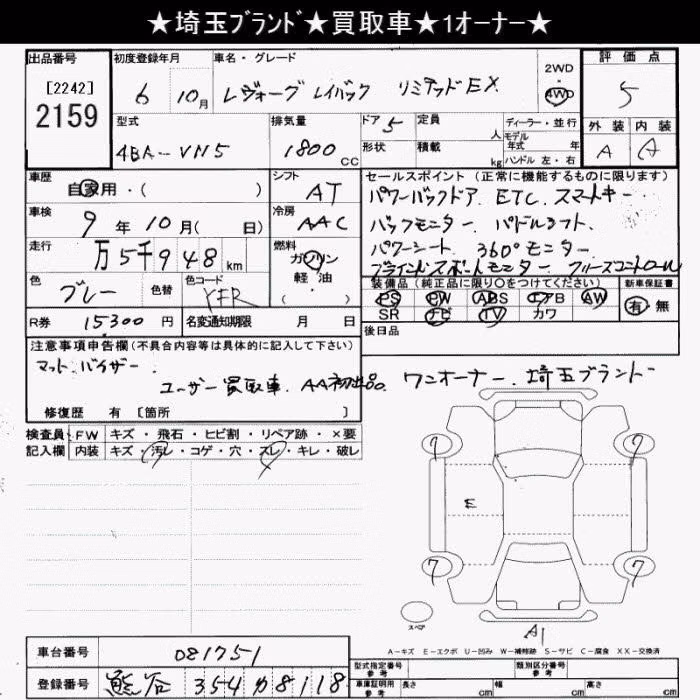 ★埼玉ブランド★買取車★1オーナー★
出品番号
[2242]
2159
初度登録年月
6年10月
車名・グレード
レヴォーグ レイバック リミテッドEX
2WD
・
4WD
評価点
5
外装 内装
A A
型式
4BA-VN5
排気量
1800cc
ドア 5
形状
定員 人
積載 kg
ディーラー・並行
モデル年式 年
ハンドル 左・右
車歴
自家用・( )
シフト
AT
車検
9年10月( 日)
冷房
AAC
走行
万5千948km
燃料
ガソリン
・
軽油
( )
色
グレー
色替
色コード
R券 15300円
名変通知期限 月 日
セールスポイント(正常に機能するものに限ります)
パワーバックドア. ETC. スマートキー.
バックモニター. パドルシフト.
パワーシート. 360°モニター
ブラインドスポットモニター. クルーズコントロール
装備品(純正品に限り○をつけてください)
PS PW ABS エアB AW
SR ナビ TV カワ
新車保証書
有・無
後日品
注意事項申告欄(不具合内容等は具体的に記入して下さい)
マット. バイザー.
ユーザー買取車. AA初出品. ワンオーナー. 埼玉ブランド
修復歴 有[箇所 ]
検査員記入欄
FW キズ・飛石・ヒビ割・リペア跡・×要
内装 キズ・汚レ・コゲ・穴・スレ・キレ・破レ
7 7
E
7 7
スペア
A1
A-キズ E-エクボ U-凹み W-補修跡 S-サビ C-腐食 XX-交換済
車台番号 081751
登録番号 熊谷 354 か 8118
型式指定番号 参考
類別区分番号 参考
車庫証明用 参考
長さ cm 幅 cm 高さ cm